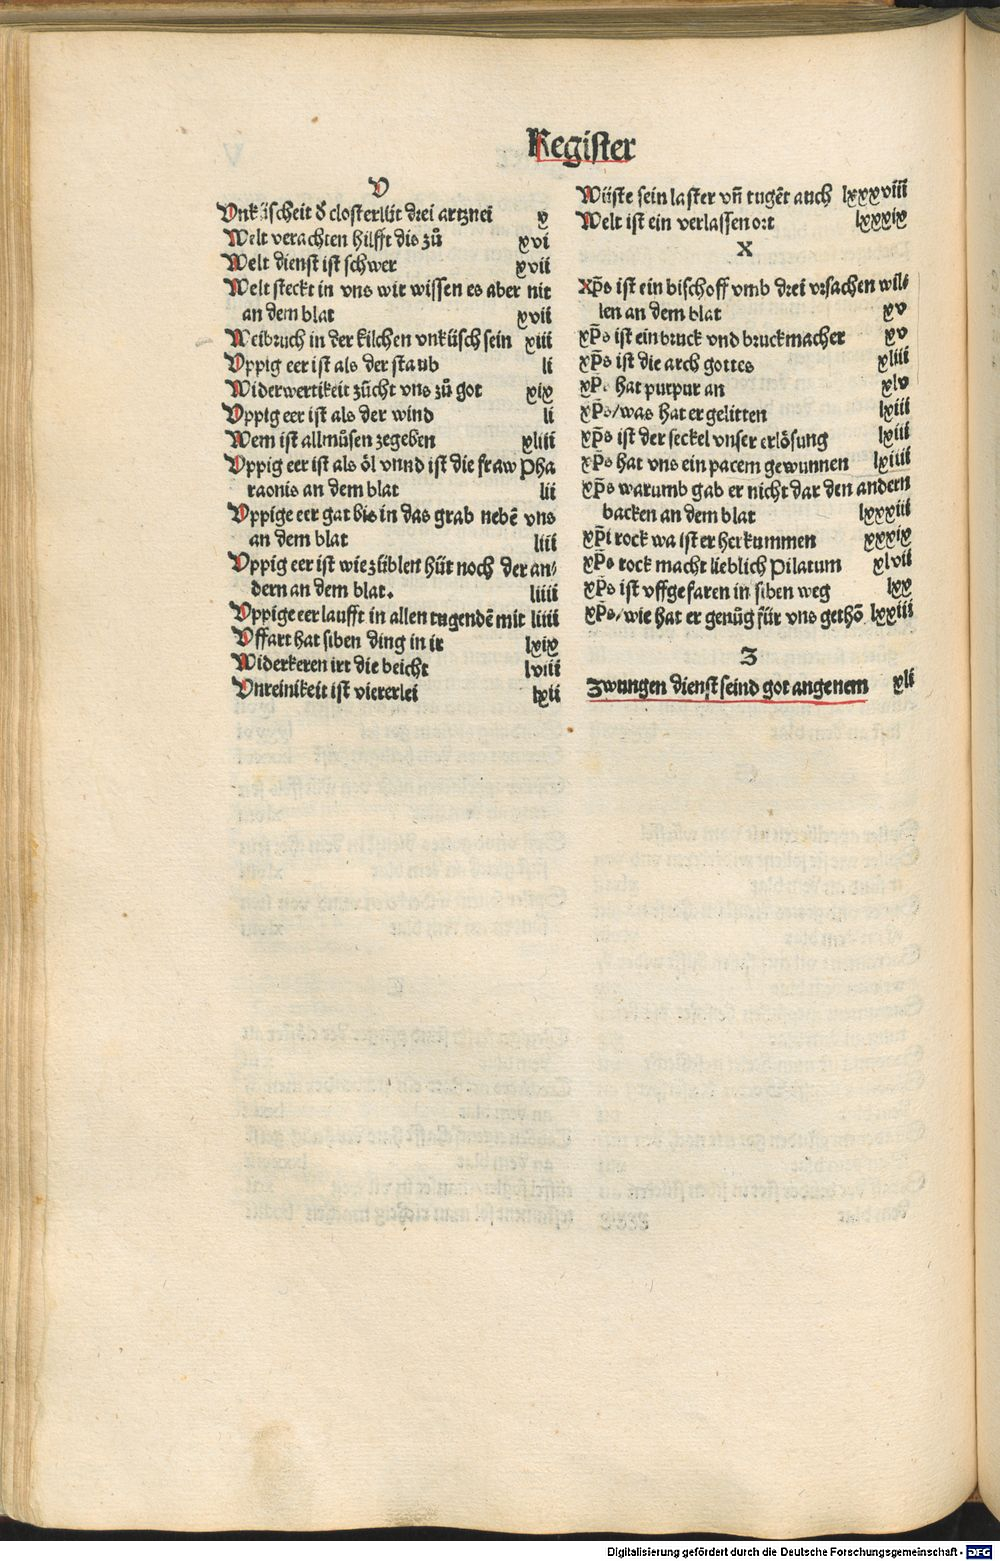 Register
V
Vnküscheit d̕ closterlüt drei artznei x
Welt verachten hilfft dis zů xvi
Welt dienst ist schwer xvii
Welt steckt in vns wir wissen es aber nit
an dem blat xvii
Weibruch in der kilchen vnküsch sein xiii
Vppig eer ist als der staub li
Widerwertikeit zücht vns zů got xix
Vppig eer ist als der wind li
Wem ist allmůsen zegeben xliii
Vppig eer ist als öl vnnd ist die fraw Pha
raonis an dem blat lii
Vppige eer gat bis in das grab nebē vns
an dem blat liii
Vppig eer ist wie zůblen hüt noch der an⸗
dern an dem blat. liiii
Vppige eer laufft in allen tugendē mit liiii
Vffart hat siben ding in ir lxix
Widerkeren irt die beicht lviii
Vnreinikeit ist viererlei lxii
Wüste sein laster vñ tugēt auch lxxxviii
Welt ist ein verlassen ort lxxxix
X
Xp̄s ist ein bischoff vmb drei vrsachen wil⸗
len an dem blat xv
xp̄s ist ein bruck vnd bruckmacher xv
xp̄s ist die arch gottes xliii
xp̄s hat purpur an xlv
xp̄s/was hat er gelitten lxiii
xp̄s ist der seckel vnser erlösung lxiii
xp̄s hat vns ein pacem gewunnen lxiiii
xp̄s warumb gab er nicht dar den andern
backen an dem blat lxxxiii
xp̄i rock wa ist er herkummen xxxix
xp̄s rock macht lieblich Pilatum xlvii
xp̄s ist vffgefaren in siben weg lxx
xp̄s/wie hat er genůg für vns gethō lxxiii
Z
Zwungen dienst seind got angenem xli
Digitalisierung gefördert durch die Deutsche Forschungsgemeinschaft - DFG